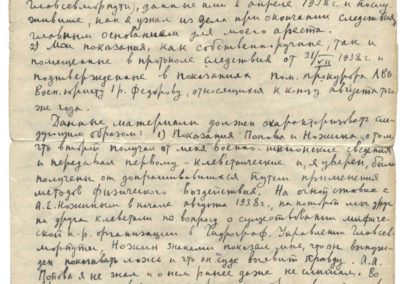 Главсевморпути), данные ими в апреле 1938 г. и послу-
жившие, как я узнал из дела при окончании следствия
главным основанием для моего ареста.
2) Мои показания, как собственноручные, так и
помещенные в протоколе следствия от 31/VII 1938 г. и
подтвержденные в показаниях Пом. прокурора ЛВО
Воен. юристу I р. Федорову, относящиеся к концу августа то-
же года.
Данные материалы должен охарактеризовать сле-
дующим образом: 1) Показания Попова и Ножина, о том,
что второй получал от меня военно-шпионские сведения
и передавал первому - клеветнические и, я уверен, были
получены от допрашивавшихся путем применения
методов физического воздействия. На очной ставке с
А.Е. Ножиным в начале августа 1938 г., на которой мы друг
на друга клеветали по вопросу о существовании мифиче-
ской к-р. организации в Гидрограф. Управлении Главсев-
морпути, Ножин знаками показал мне, что он вынуж-
ден показывать ложь и что он суде выявит правду. А.А.
Попова я не знал и о нем ранее даже не слышал. Ео